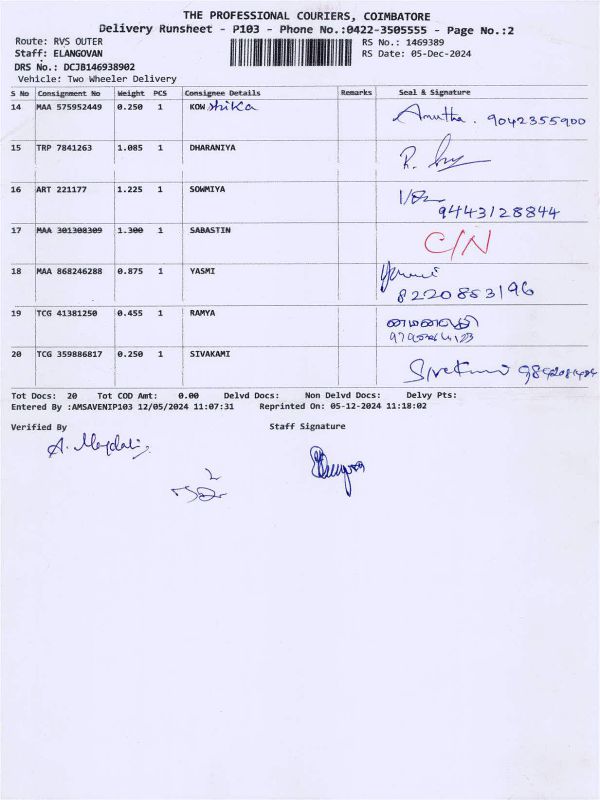 THE PROFESSIONAL COURIERS, COIMBATORE
Delivery Runsheet - P103 - Phone No.:0422-3505555 - Page No.:2
Route: RVS OUTER RS No.: 1469389
Staff: ELANGOVAN RS Date: 05-Dec-2024
DRS No.: DCJB146938902
Vehicle: Two Wheeler Delivery
S No Consignment No Weight PCS Consignee Details Remarks Seal & Signature
14 MAA 575952449 0.250 1 KOWshika Amutha . 9042355900
15 TRP 7841263 1.085 1 DHARANIYA R.
16 ART 221177 1.225 1 SOWMIYA
9443128844
17 MAA 301308309 1.300 1 SABASTIN C/N
18 MAA 868246288 0.875 1 YASMI
8220853196
19 TCG 41381250 0.455 1 RAMYA
20 TCG 359886817 0.250 1 SIVAKAMI Sivakami
Tot Docs: 20 Tot COD Amt: 0.00 Delvd Docs: Non Delvd Docs: Delvy Pts:
Entered By :AMSAVENIP103 12/05/2024 11:07:31 Reprinted On: 05-12-2024 11:18:02
Verified By Staff Signature